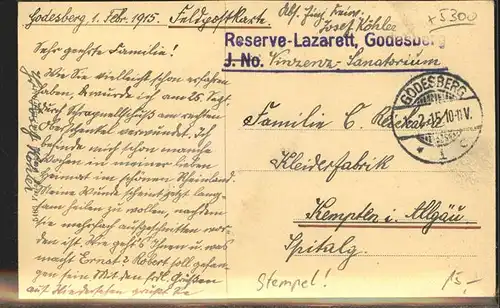 Godesberg 1. Febr. 1915. Feldpostkarte.
Josef Köhler
+5300
Reserve-Lazarett, Godesberg
J.-No. Vinzenz-Sanatorium
Sehr geehrte Familie!
Wie Sie vielleicht schon erfahren
haben, wurde ich am 25. Sept.
durch Schrapnellschuß am rechten
Oberschenkel verwundet. Ich
befinde mich schon manche
Wochen in meiner lieben
Heimat im schönen Rheinland.
Meine Wunde scheint jetzt lang-
sam heilen zu wollen, nachdem
sie mehrfach aufgeschnitten wor-
den ist. Wie geht's Ihnen u. was
macht Robert soll gefan-
gen sein. Mit den frdl. Grüßen
auf Wiedersehen grüßt Sie
GODESBERG
1.2.15.10-11V.
* 1 c
Familie C.
Kleiderfabrik
Kempten i. Allgäu
Spitalg.
Stempel!
15.-